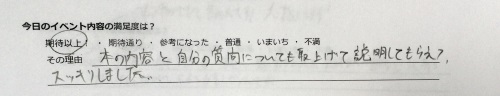 今日のイベント内容の満足度は？
期待以上！ ・ 期待通り ・ 参考になった ・ 普通 ・ いまいち ・ 不満
その理由 本の内容と自分の質問についても取上げて説明してもらえ?,
スッキリしました。